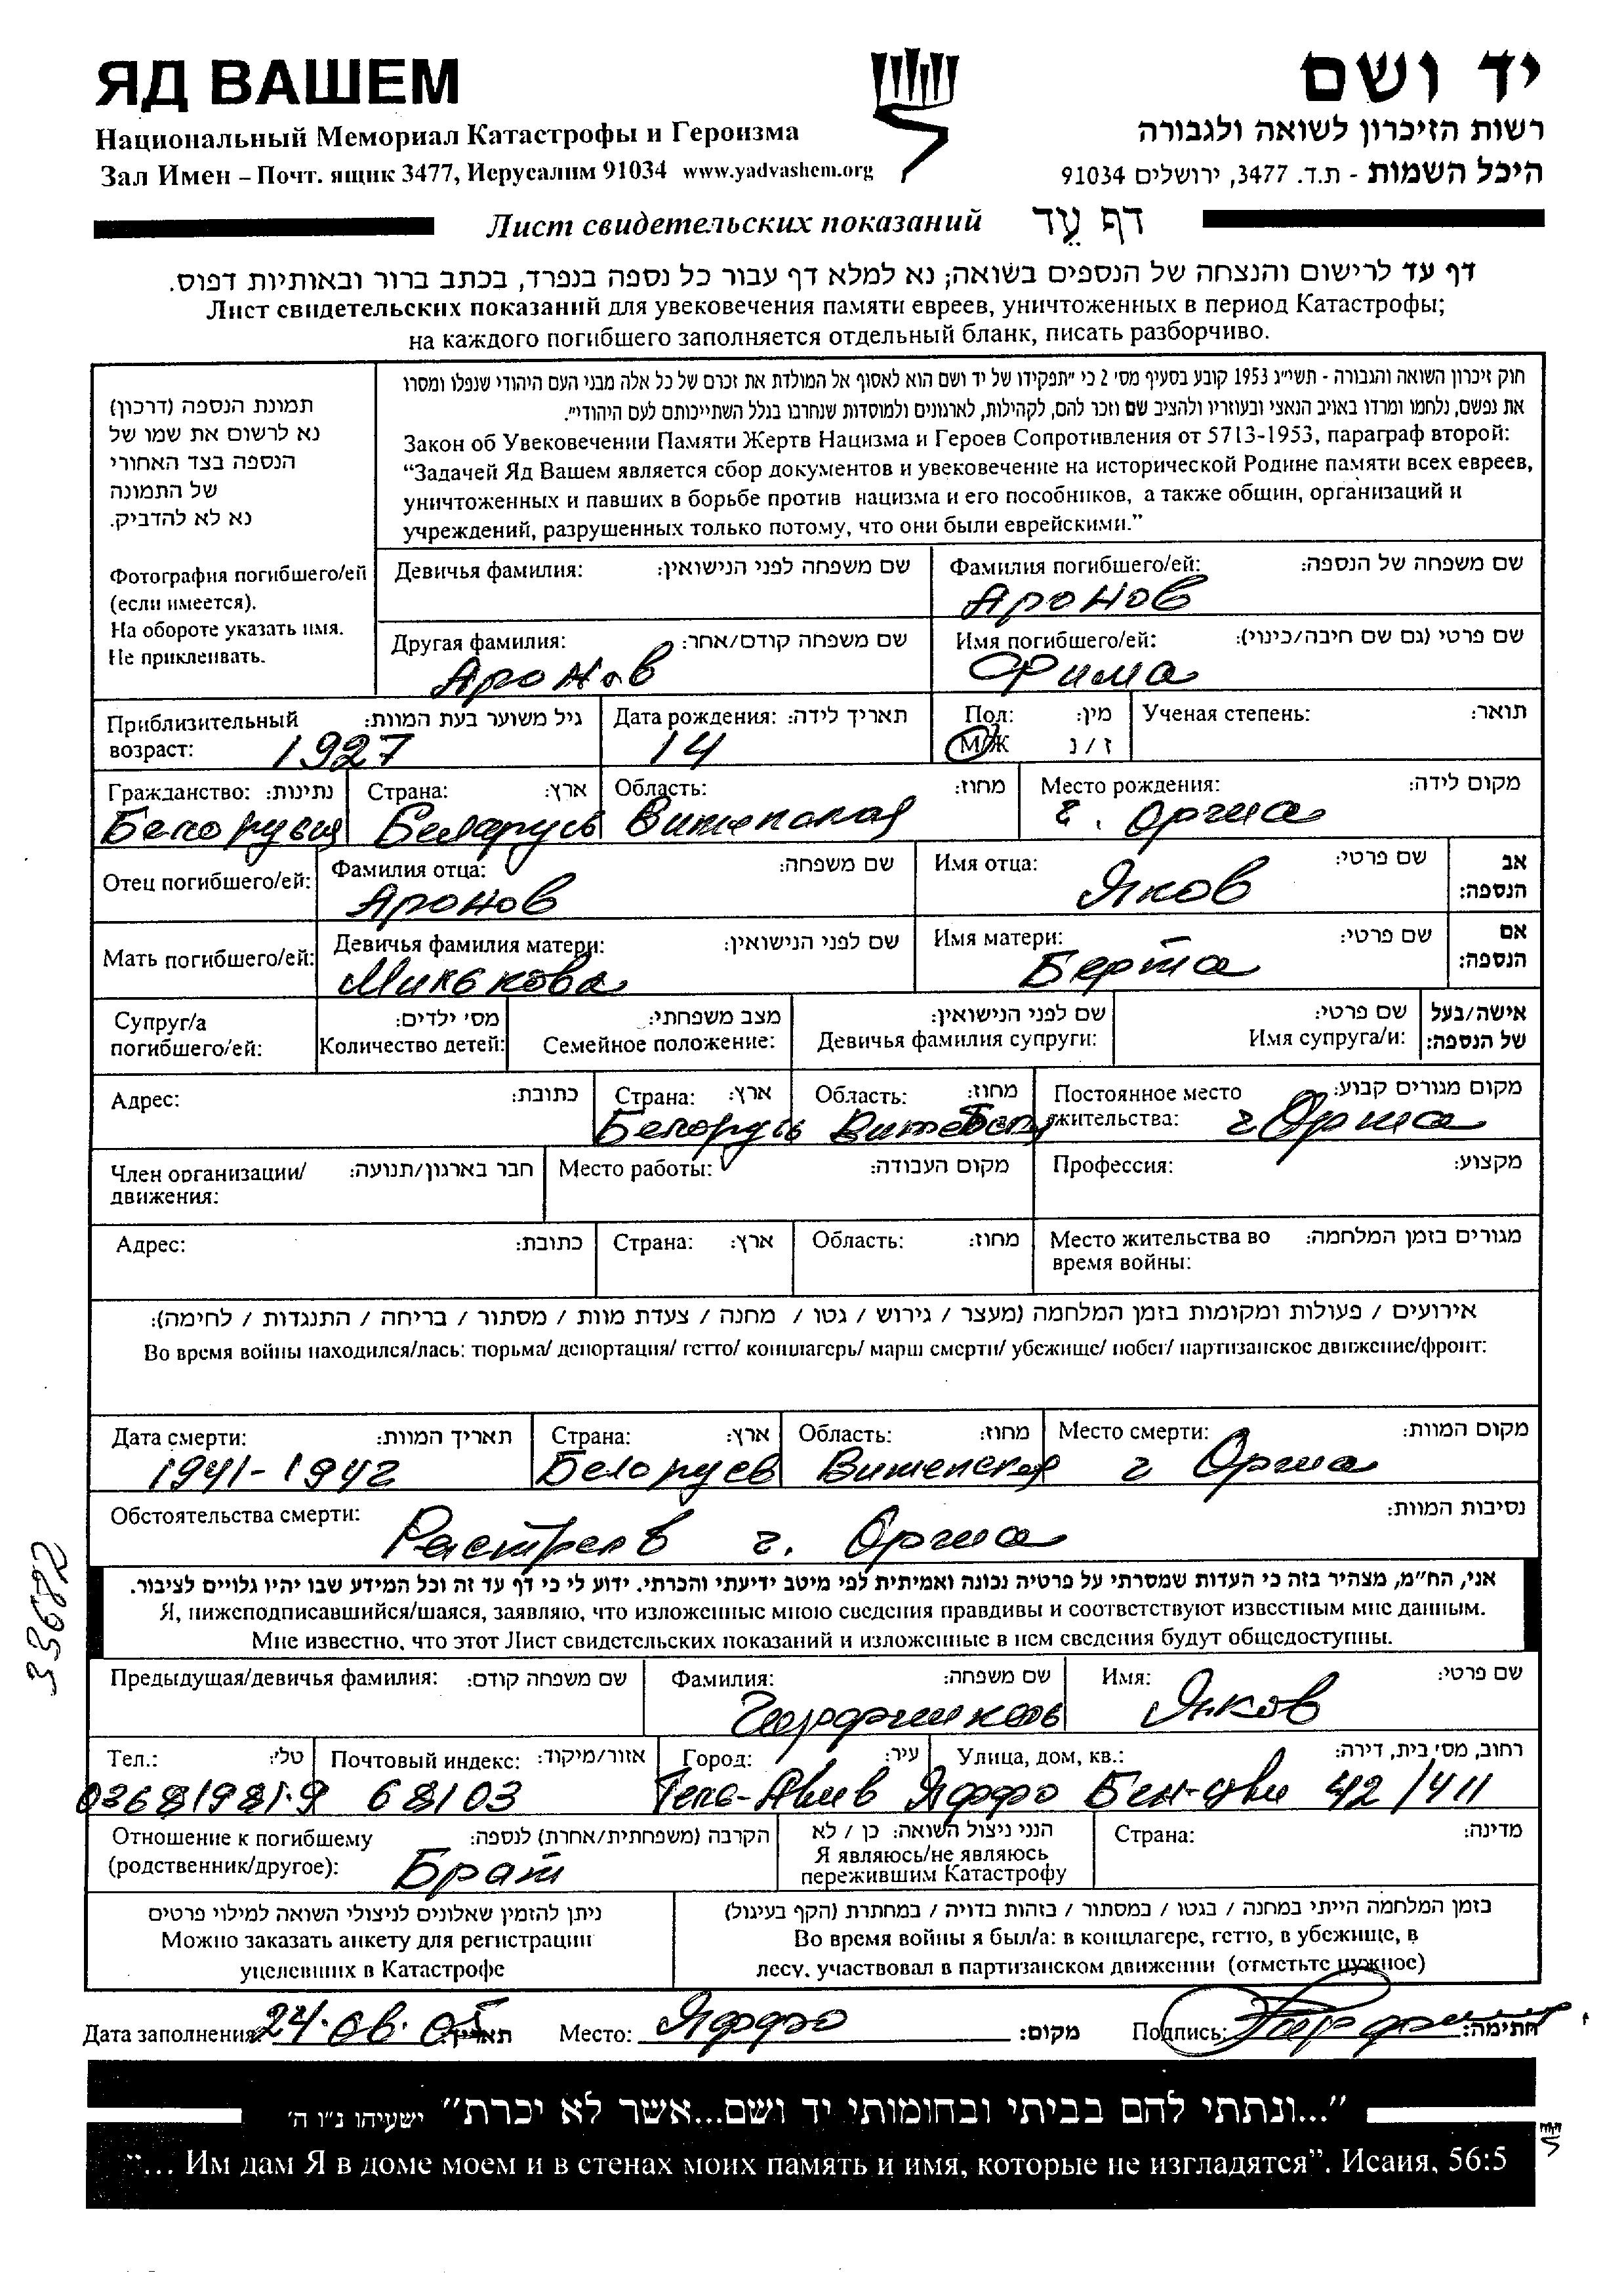 ЯД ВАШЕМ
יד ושם
Национальный Мемориал Катастрофы и Героизма
רשות הזיכרון לשואה ולגבורה
Зал Имен – Почт. ящик 3477, Иерусалим 91034 www.yadvashem.org
היכל השמות - ת.ד. 3477, ירושלים 91034
Лист свидетельских показаний דף עֵד
דף עד לרישום והנצחה של הנספים בשואה; נא למלא דף עבור כל נספה בנפרד, בכתב ברור ובאותיות דפוס.
Лист свидетельских показаний для увековечения памяти евреев, уничтоженных в период Катастрофы;
на каждого погибшего заполняется отдельный бланк, писать разборчиво.
תמונת הנספה (דרכון)
נא לרשום את שמו של
הנספה בצד האחורי
של התמונה
נא לא להדביק.
Фотография погибшего/ей
(если имеется).
На обороте указать имя.
Не приклеивать.
חוק זיכרון השואה והגבורה - תשי״ג 1953 קובע בסעיף מס׳ 2 כי ״תפקידו של יד ושם הוא לאסוף אל המולדת את זכרם של כל אלה מבני העם היהודי שנפלו ומסרו
את נפשם, נלחמו ומרדו באויב הנאצי ובעוזריו ולהציב שם וזכר להם, לקהילות, לארגונים ולמוסדות שנחרבו בגלל השתייכותם לעם היהודי״.
Закон об Увековечении Памяти Жертв Нацизма и Героев Сопротивления от 5713-1953, параграф второй:
“Задачей Яд Вашем является сбор документов и увековечение на исторической Родине памяти всех евреев,
уничтоженных и павших в борьбе против нацизма и его пособников, а также общин, организаций и
учреждений, разрушенных только потому, что они были еврейскими.”
Девичья фамилия: שם משפחה לפני הנישואין:
Фамилия погибшего/ей: שם משפחה של הנספה:
Аронов
Другая фамилия: שם משפחה קודם/אחר:
Аронов
Имя погибшего/ей: שם פרטי (גם שם חיבה/כינוי):
Фима
Приблизительный גיל משוער בעת המוות:
возраст: 1927
Дата рождения: תאריך לידה:
14
Пол: מין:
М/Ж ז / נ
Ученая степень: תואר:
Гражданство: נתינות:
Белорусия
Страна: ארץ:
Беларусь
Область: מחוז:
Витепская
Место рождения: מקום לידה:
г. Орша
Отец погибшего/ей:
Фамилия отца: שם משפחה:
Аронов
Имя отца: שם פרטי:
Яков
אב
הנספה:
Мать погибшего/ей:
Девичья фамилия матери: שם לפני הנישואין:
Милькова
Имя матери: שם פרטי:
Берта
אם
הנספה:
Супруг/а
погибшего/ей:
מס׳ ילדים:
Количество детей:
מצב משפחתי:
Семейное положение:
שם לפני הנישואין:
Девичья фамилия супруги:
שם פרטי:
Имя супруга/и:
אישה/בעל
של הנספה:
Адрес: כתובת:
Страна: ארץ:
Белорусь
Область: מחוז:
Постоянное место מקום מגורים קבוע:
жительства: г Орша
Член организации/ חבר בארגון/תנועה:
движения:
Место работы: מקום העבודה:
Профессия: מקצוע:
Адрес: כתובת:
Страна: ארץ:
Область: מחוז:
Место жительства во מגורים בזמן המלחמה:
время войны:
אירועים / פעולות ומקומות בזמן המלחמה (מעצר / גירוש / גטו / מחנה / צעדת מוות / מסתור / בריחה / התנגדות / לחימה):
Во время войны находился/лась: тюрьма/ депортация/ гетто/ концлагерь/ марш смерти/ убежище/ побег/ партизанское движение/фронт:
Дата смерти: תאריך המוות:
1941-1942
Страна: ארץ:
Белорусь
Область: מחוז:
Витепская
Место смерти: מקום המוות:
г Орша
Обстоятельства смерти: נסיבות המוות:
Растрелв г. Орша
אני, הח״מ, מצהיר בזה כי העדות שמסרתי על פרטיה נכונה ואמיתית לפי מיטב ידיעתי והכרתי. ידוע לי כי דף עד זה וכל המידע שבו יהיו גלויים לציבור.
Я, нижеподписавшийся/шаяся, заявляю, что изложенные мною сведения правдивы и соответствуют известным мне данным.
Мне известно, что этот Лист свидетельских показаний и изложенные в нем сведения будут общедоступны.
33682
Предыдущая/девичья фамилия: שם משפחה קודם:
Фамилия: שם משפחה:
Имя: שם פרטי:
Яков
Тел.: טלי:
036819819
Почтовый индекс: אזור/מיקוד:
68103
Город: עיר:
Тель-Авив Яффо
Улица, дом, кв.: רחוב, מס׳ בית, דירה:
Бен-цви 42/411
Отношение к погибшему הקרבה (משפחתית/אחרת) לנספה:
(родственник/другое): Брат
הנני ניצול השואה: כן / לא
Я являюсь/не являюсь
пережившим Катастрофу
Страна: מדינה:
ניתן להזמין שאלונים לניצולי השואה למילוי פרטים
Можно заказать анкету для регистрации
уцелевших в Катастрофе
בזמן המלחמה הייתי במחנה / בגטו / במסתור / בזהות בדויה / במחתרת (הקף בעיגול)
Во время войны я был/а: в концлагере, гетто, в убежище, в
лесу, участвовал в партизанском движении (отметьте нужное)
Дата заполнения 24.06.05 תאריך:
Место: Яффо מקום:
Подпись: חתימה:
״...ונתתי להם בביתי ובחומותי יד ושם...אשר לא יכרת״ ישעיהו נ״ו ה׳
“... Им дам Я в доме моем и в стенах моих память и имя, которые не изгладятся”. Исаия, 56:5